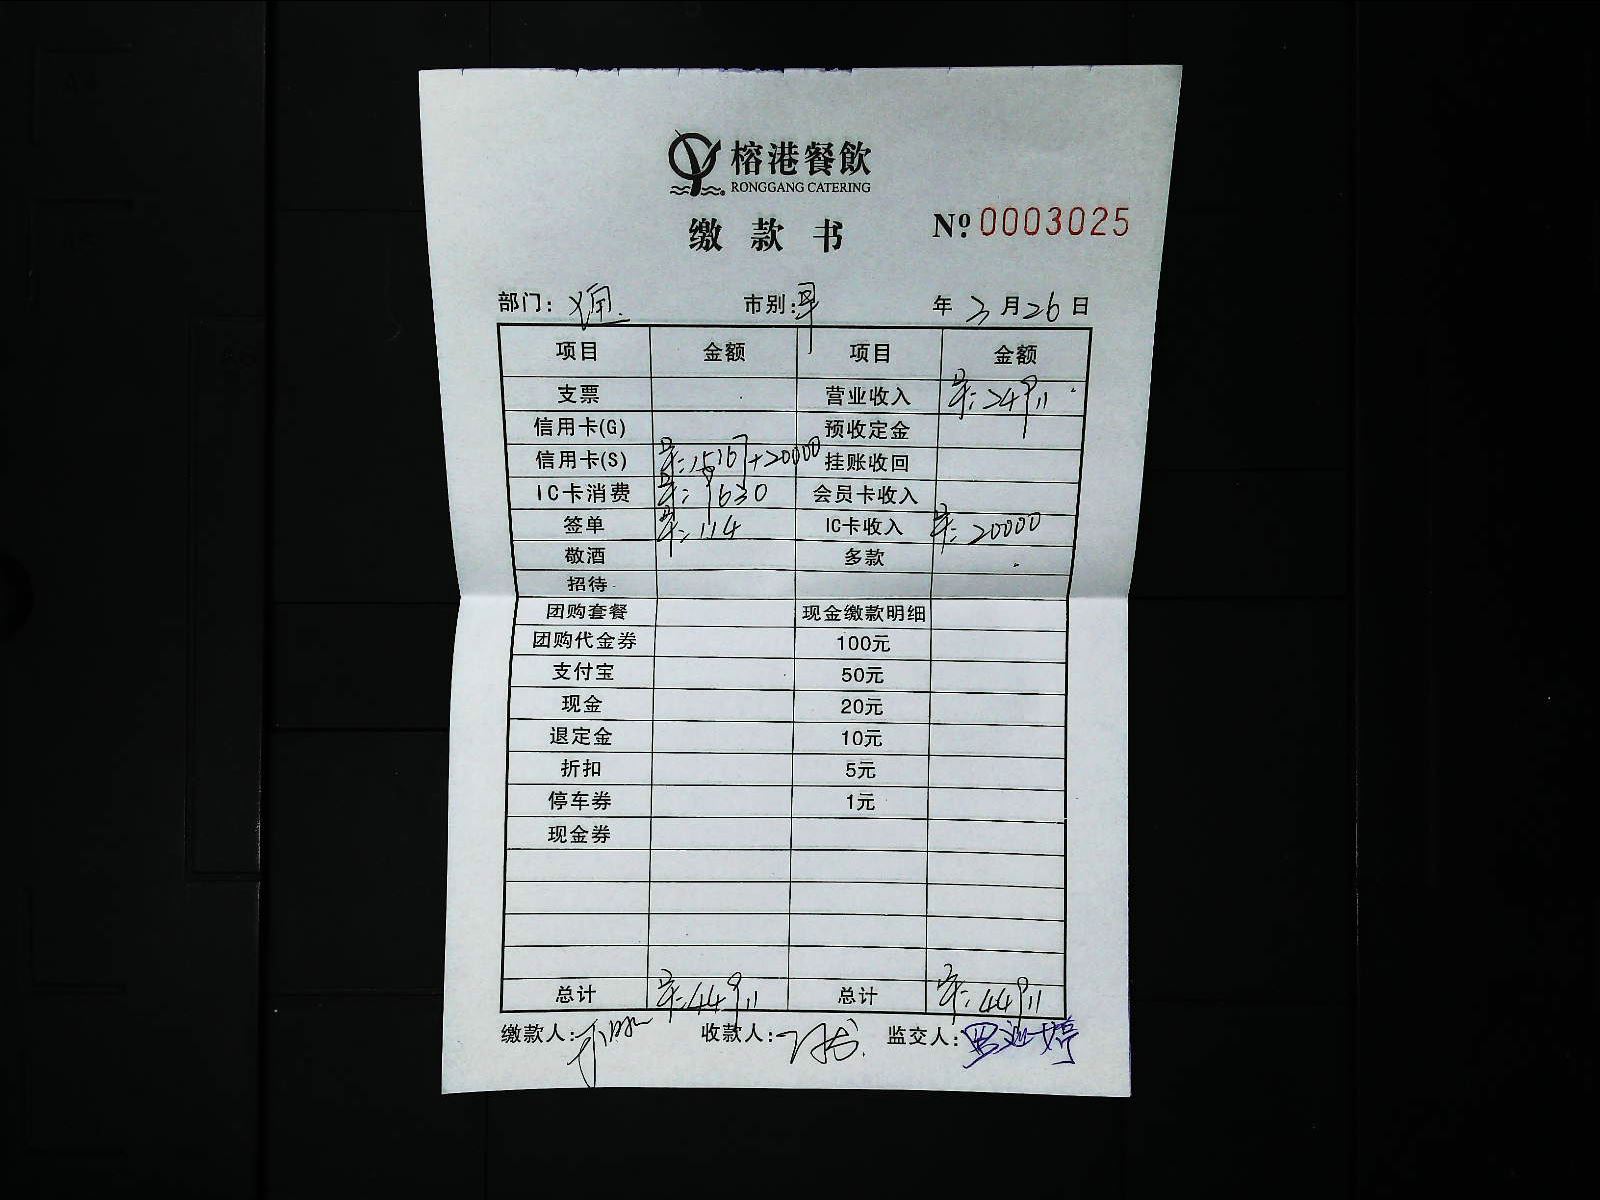 榕港餐飲
RONGGANG CATERING
缴款书 Nº 0003025
部门: 市别:早 年 3月26日
项目 金额 项目 金额
支票 营业收入 早:24911
信用卡(G) 预收定金
信用卡(S) 早:15167+20000 挂账收回
IC卡消费 早:9630 会员卡收入
签单 早:114 IC卡收入 早:20000
敬酒 多款
招待
团购套餐 现金缴款明细
团购代金券 100元
支付宝 50元
现金 20元
退定金 10元
折扣 5元
停车券 1元
现金券
总计 早:44911 总计 早:44911
缴款人: 收款人: 监交人: